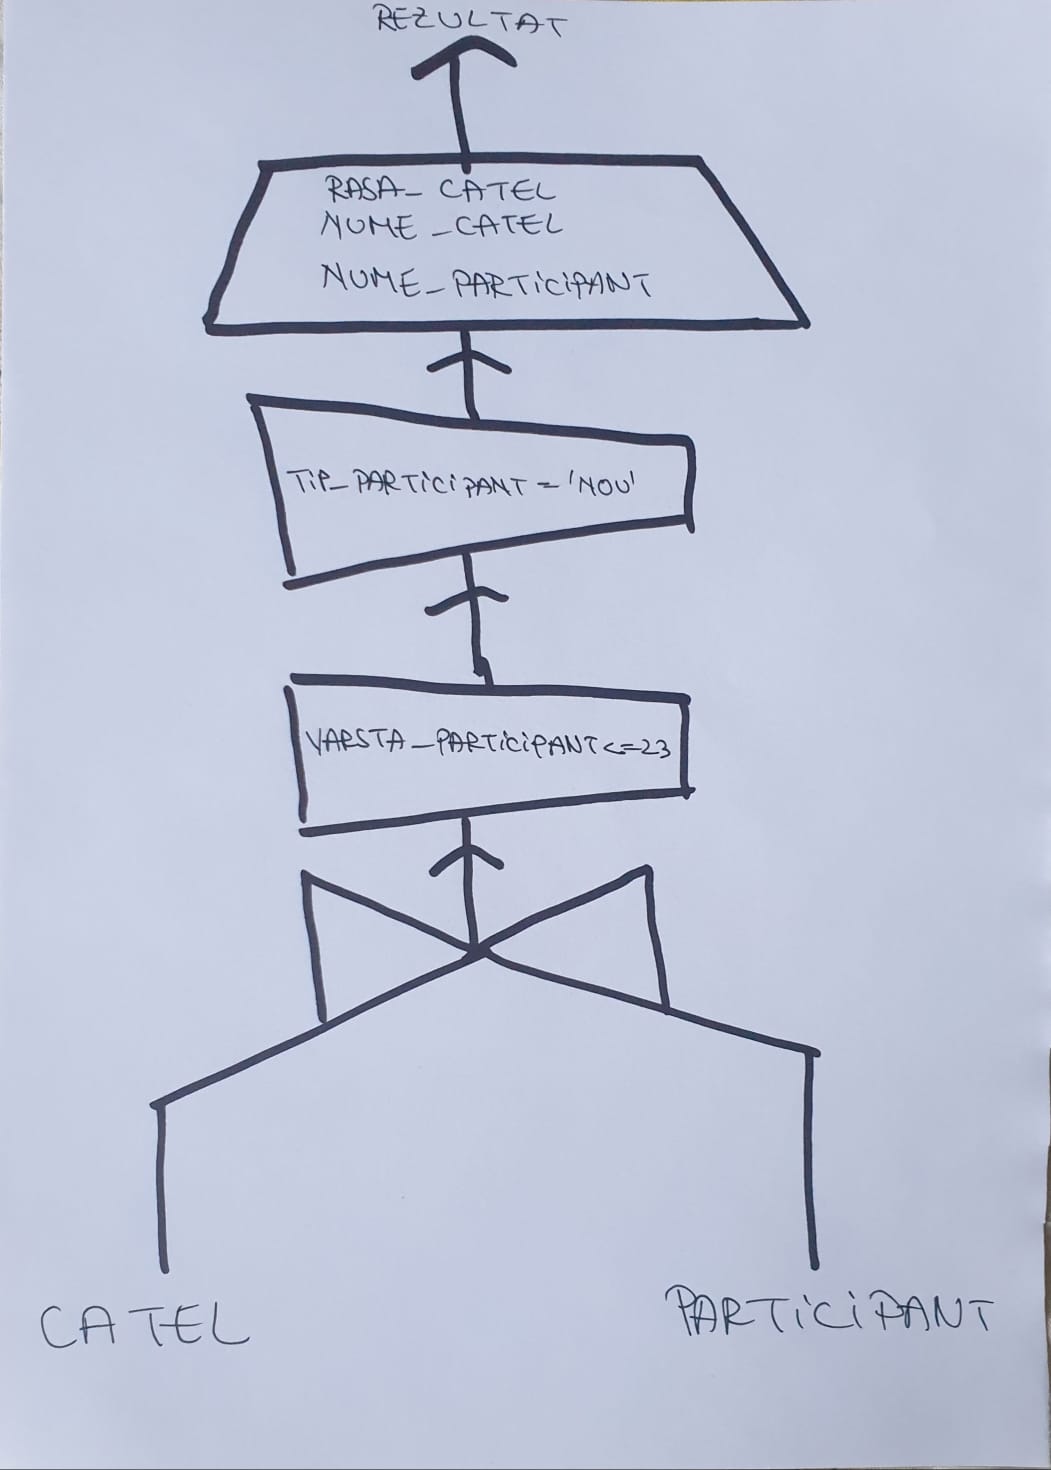 REZULTAT
RASA_ CATEL
NUME _CATEL
NUME_PARTiCiPANT
TiP_PARTiCiPANT = 'NOU'
VARSTA_PARTiCiPANT<=23
CATEL
PARTiCiPANT